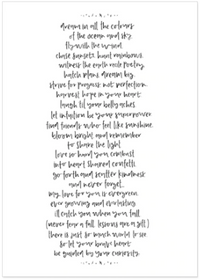 dream in all the colours
of the ocean and sky.
fly with the wind.
chase sunsets. hunt rainbows.
witness the earth rock poetry.
hatch plans. dream big.
strive for progress not perfection.
harvest hope in your heart.
laugh til your belly aches.
let intuition be your superpower.
find friends who feel like sunshine.
bloom bright and remember
to share the light.
love so hard you combust
into heart shaped confetti.
go forth and scatter kindness
and never forget,
my love for you is evergreen.
ever growing and everlasting.
i'll catch you when you fall
(never fear a fall. lessons are a gift)
there is just so much world to see
so let your brave heart
be guided by your curiosity.